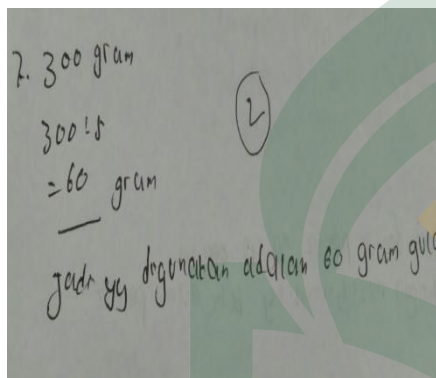 7. 300 gram
300 : 5
2
= 60 gram
Jadi yg digunakan adalah 60 gram gula